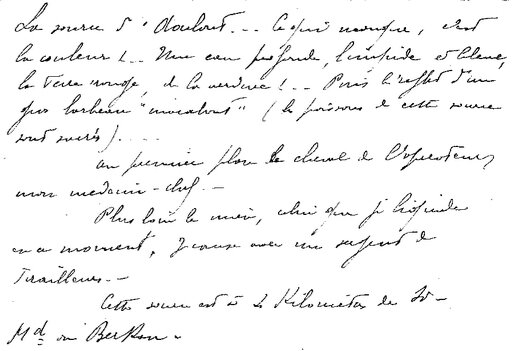 La source d'Aoulout... Ce qui manque, c'est
la couleur !.. Une eau profonde, limpide et bleue,
la terre rouge, de la verdure !.. Puis le reflet d'un
gros barbeau "marabout" (les poissons de cette source
sont sacrés)....
au premier plan le cheval de l'opérateur,
mon médecin-chef.-
Plus loin le mien, celui que je
en ce moment, je cause avec un sergent de
Tirailleurs.-
Cette source est à 2 Kilomètres de Si-
Md ou Berkan.